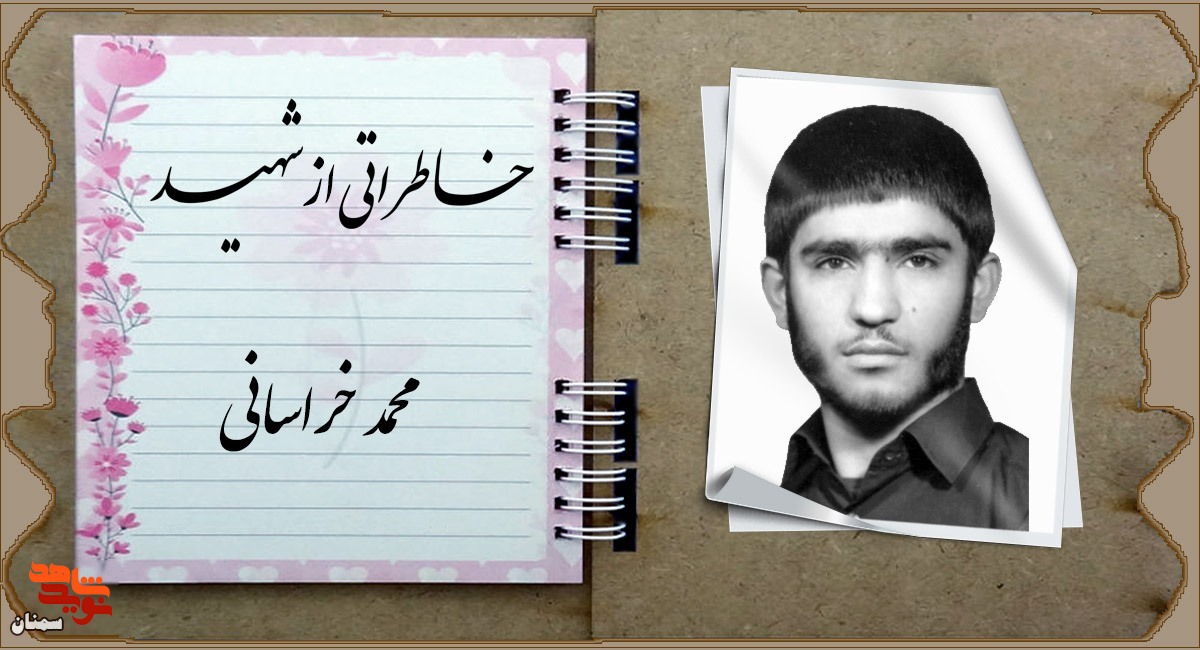 خاطراتی از شهید
محمد خراسانی
نوید شاهد
سمنان